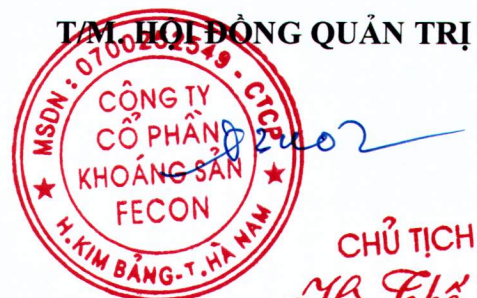 T/M. HỘI ĐỒNG QUẢN TRỊ
MSDN: 0700252549 - CTCP
CÔNG TY
CỔ PHẦN
KHOÁNG SẢN
FECON
H. KIM BẢNG - T. HÀ NAM
CHỦ TỊCH